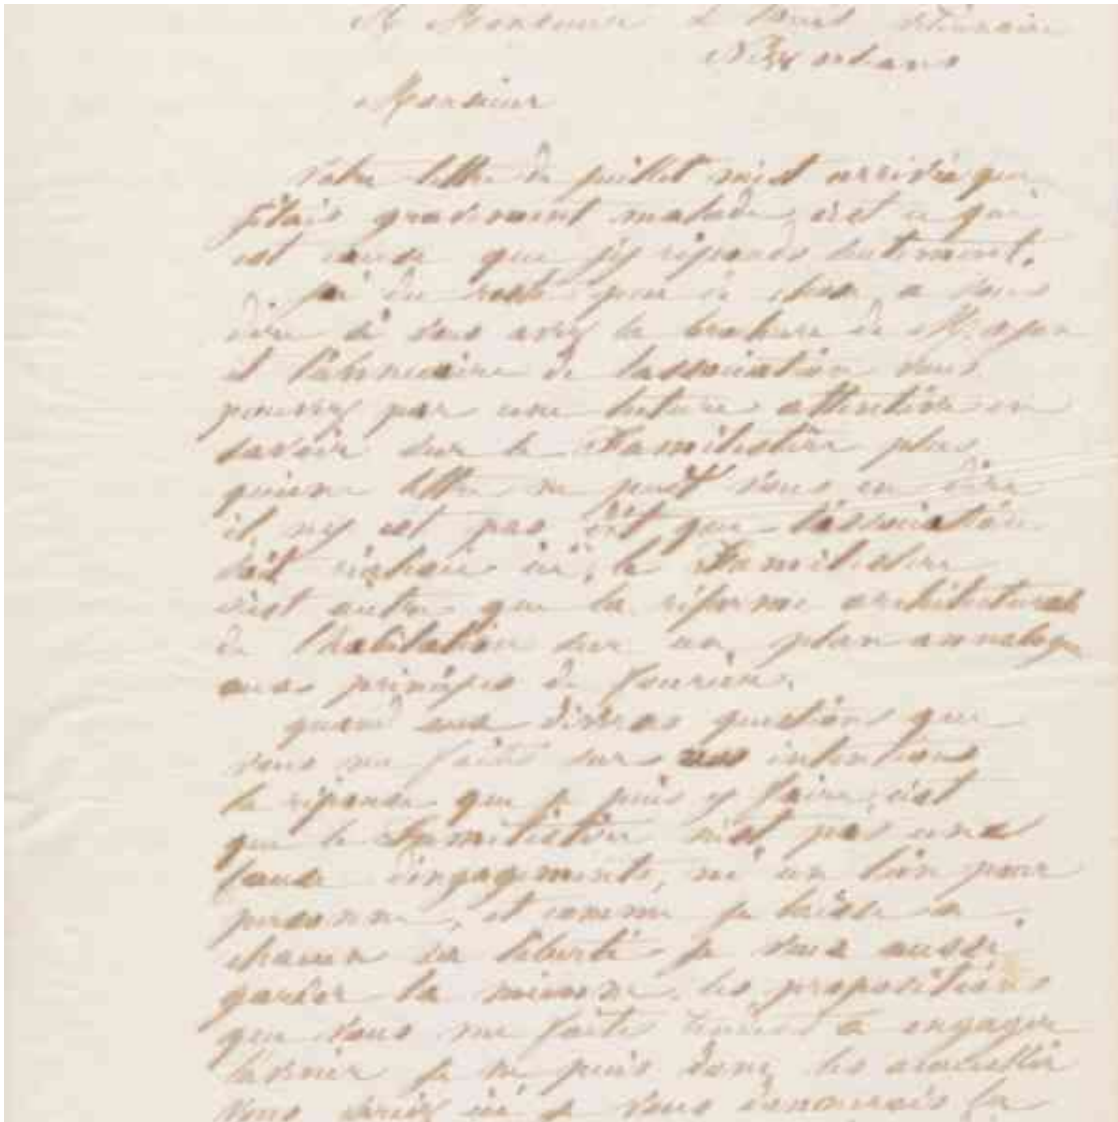 A Monsieur L vétérinaire
Monsieur
Votre lettre de juillet m'est arrivée que
j'étais gravement malade, c'est ce qui
est cause que j'y réponds tardivement.
j'ai du reste peu de chose a vous
dire si vous avez la brochure de M. 
et l'ahnuaire de l'association vous
pouvez par une lecture attentive en
savoir sur le Familistère plus
qu'une lettre ne peut vous en dire
il n'y est pas dit que l'association
soit réalisée ici, le Familistère
n'est autre que la réforme architecturale
de l'habitation sur un plan annalogue
aux principes de fourier.
quand aux diverses questions que
vous me faites sur mes intentions
la réponse que je puis y faire, c'est
que le Familistère n'est pas une
cause d'engagements, ni un lien pour
personne, et comme je laisse a
chacun sa liberté je veux aussi
garder la mienne, les propositions
que vous me faites tendent a engager
l'avenir je ne puis donc les accueillir
vous seriez ici je vous donnerais la